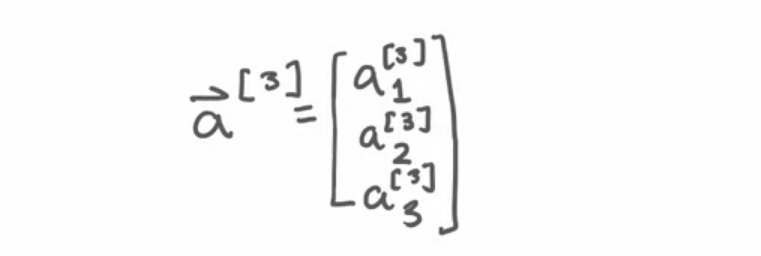 $\vec{a}^{[3]} = \begin{bmatrix} a_1^{[3]} \\ a_2^{[3]} \\ a_3^{[3]} \end{bmatrix}$